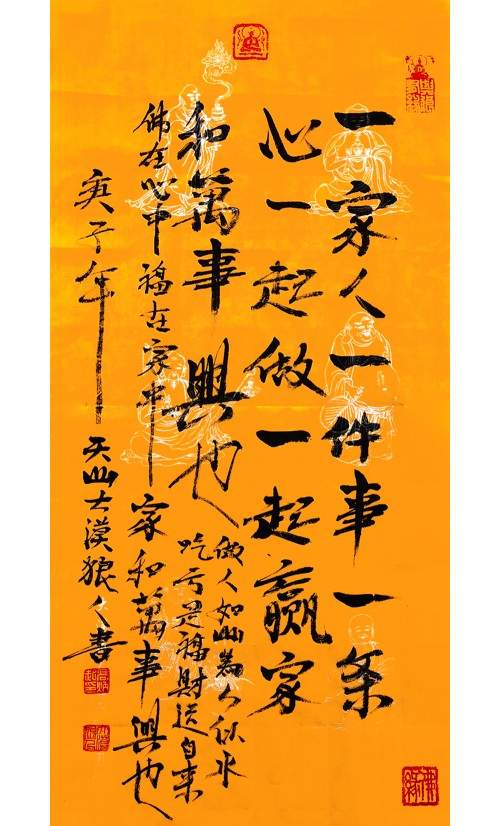 一家人一件事一条
心一起做一起赢家
和萬事興也
做人如山為人似水
吃亏是福財送自来
佛在心中福在家中家和萬事興也
庚子年天山大漠狼人書